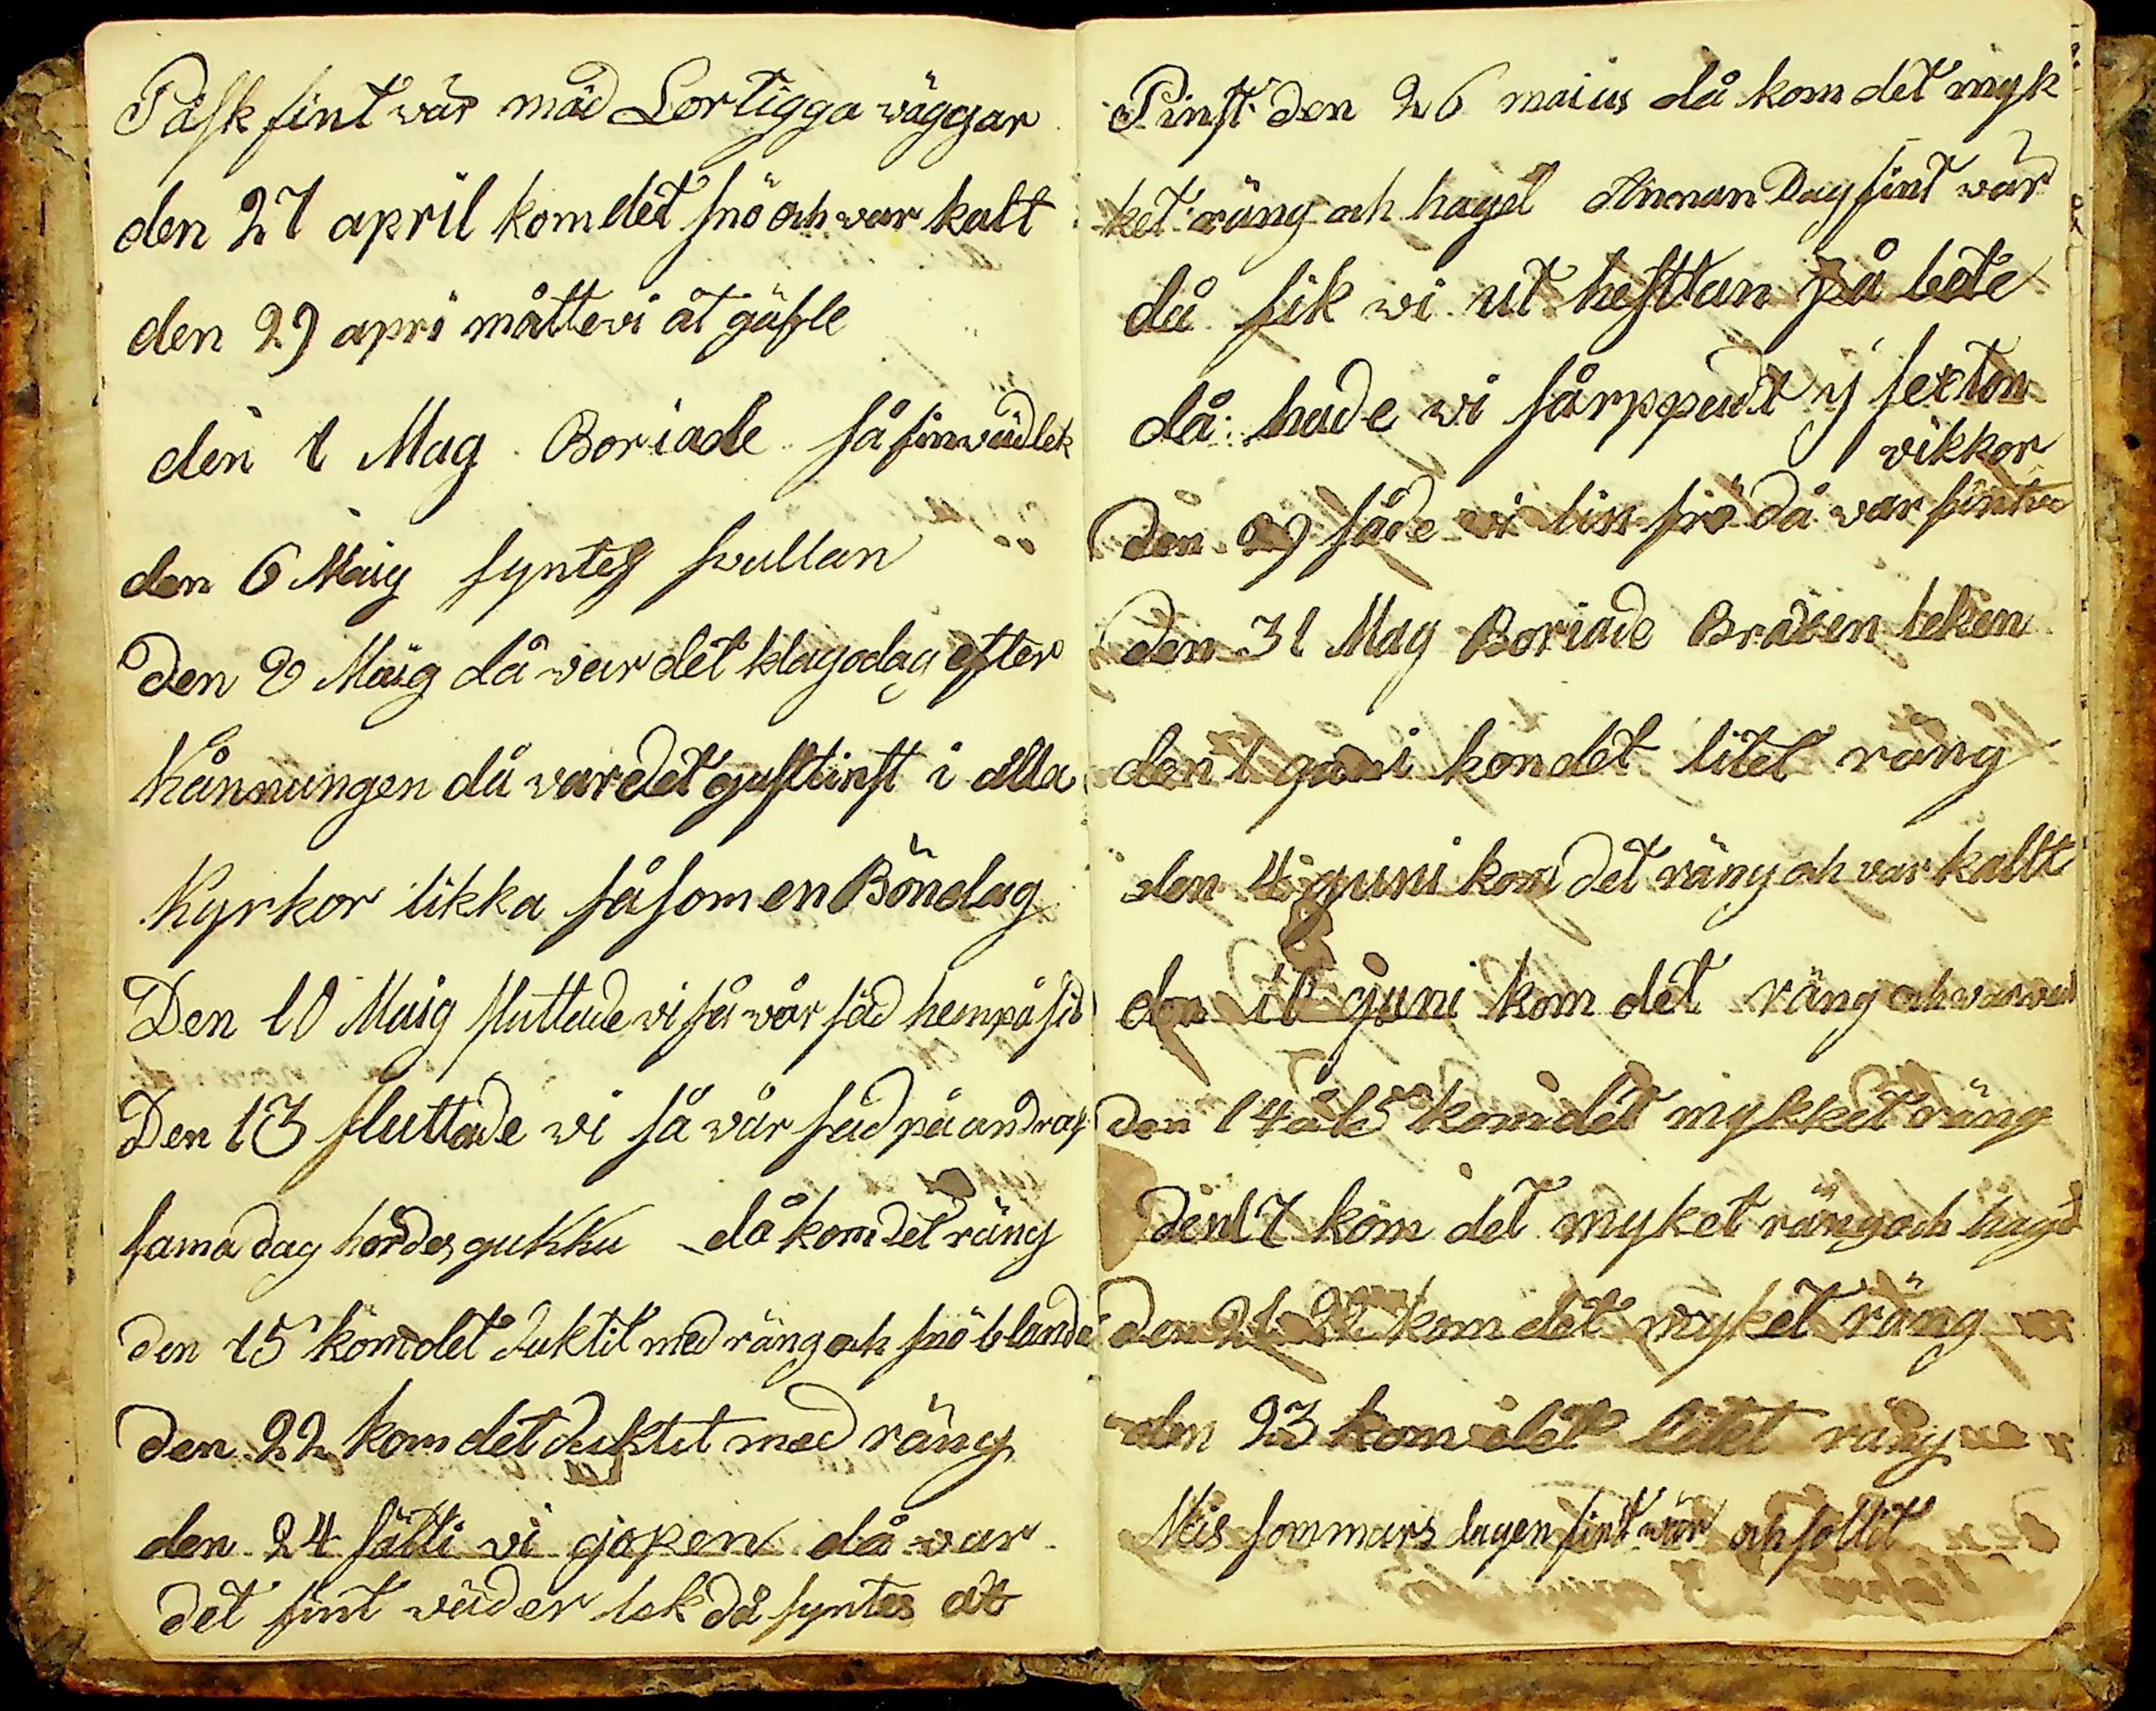 Påsk fint wär mäd Lortigga wäggar
den 27 april kom det snö och war kalt
den 29 apri måtte wi åt gäfle
den 1 Mag Boriade så fin wädlek
den 6 Maig syntes swallan
Den 8 Maig då war det klagodag efter
Kånnungen då war det gustinst i alla
Kyrkor likka så som en Böndag
Den 10 Maig sluttade vi så wår säd hempå
Den 13 sluttade wi så vår säd på
sama dag hördes gukku då kom det räng
den 15 kom det duktit med räng och snö blanda
den 22 kom det duktit med räng
den 24 sätti vi gjopen då war
det fint wäder lek då syntes at
Pinst den 26 maius då kom det myk
ket räng och hagel Annan Dag fint wär
då fik wi ut hesttan på bete
då hade wi fårppeudt y sexton
vikkor
den 29 såde wi lin frö då war
Den 31 Mag Boriade Braxen leken
den 1 guni kom det litet räng
den 4 guni kom det räng och war kallt
den guni kom det räng och war
den 14 å 15 kom det mykket räng
den 17 kom det myket räng och hagel
Den 21 22 kom det myket räng
den 23 kom det litet räng
Mis sommars dagen fint wär och sollit